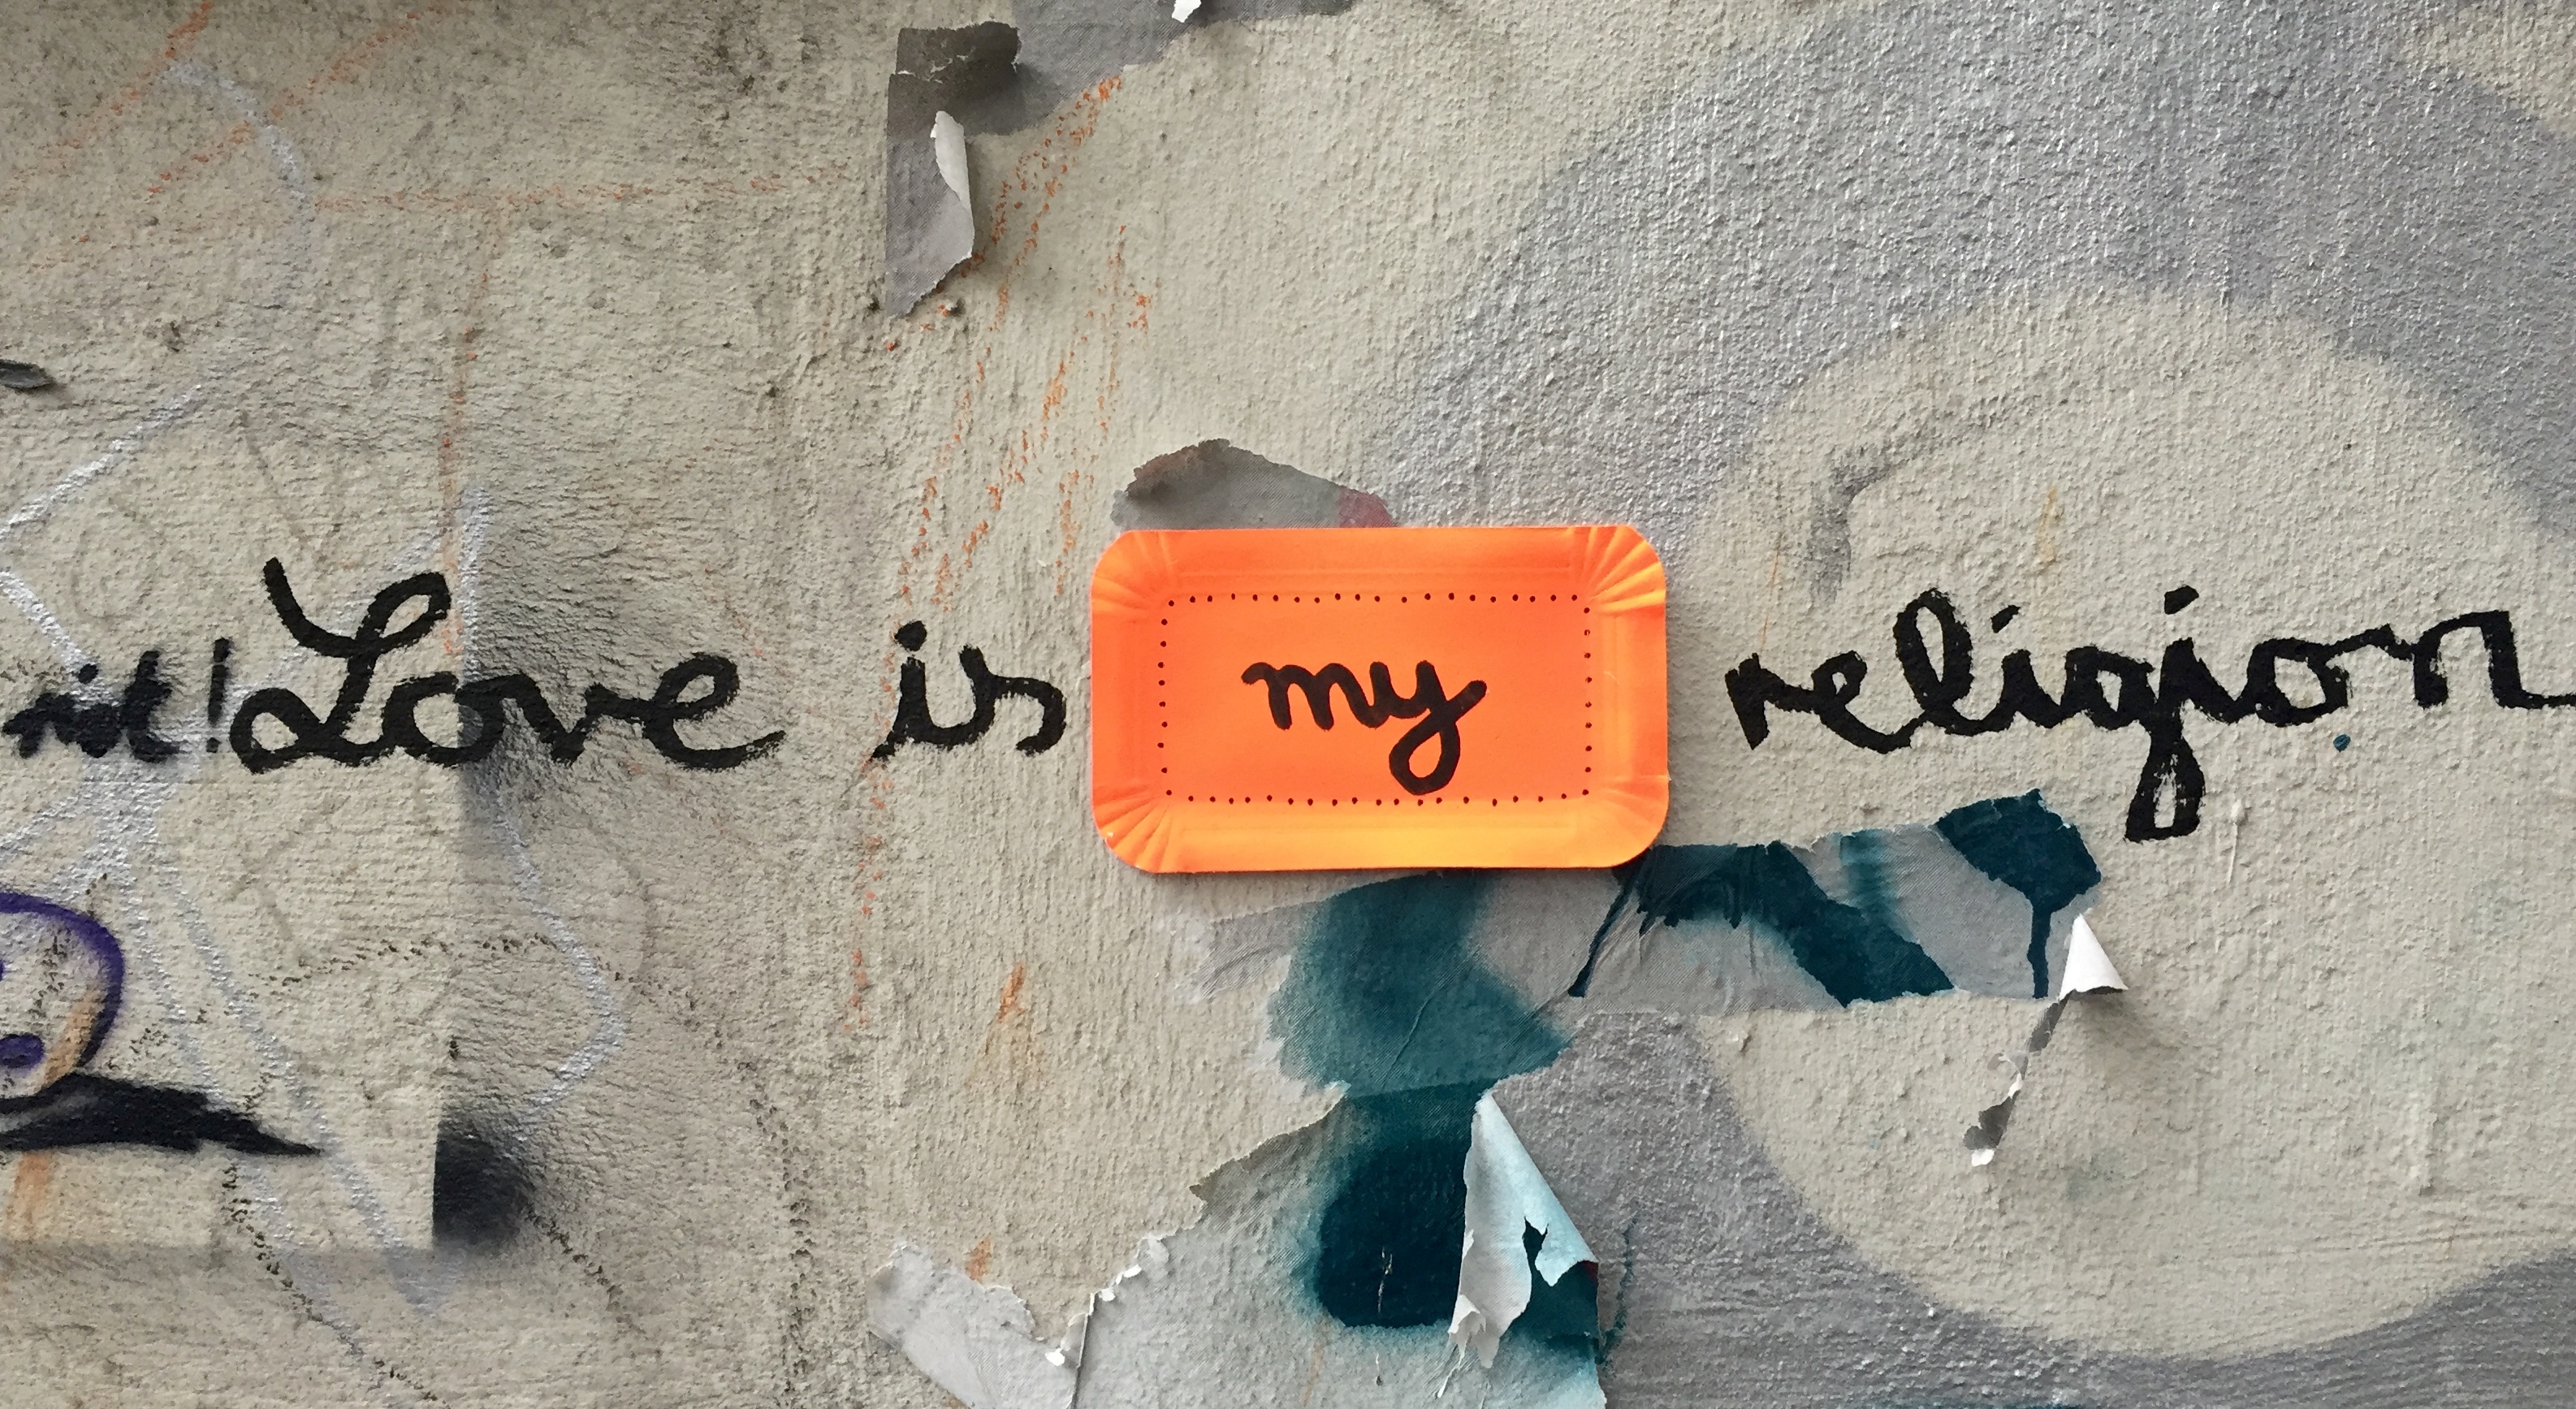 Love is my religion